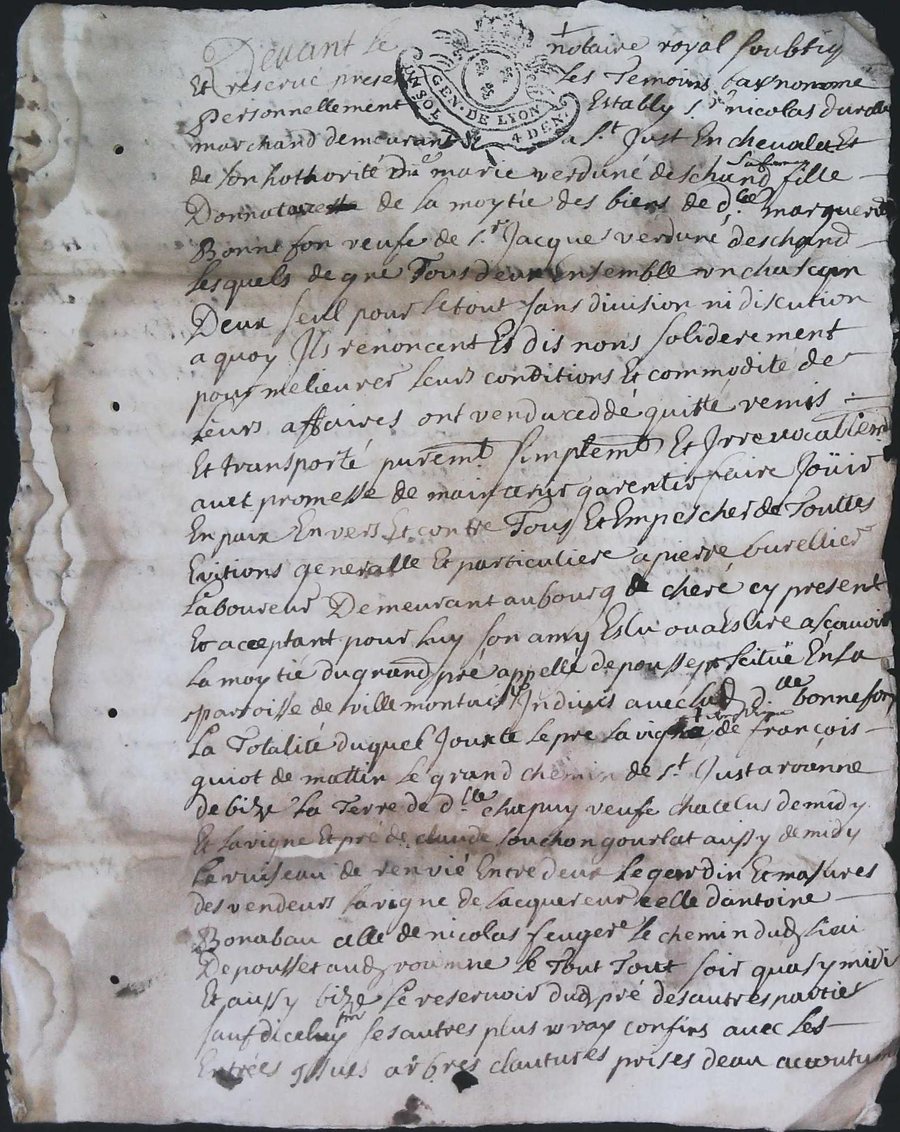 Devant le notaire royal soubsig
Et reservé prese les Temoins bas nommé
Personnellement Estably Sr nicolas durelle
marchand demeurant a St Just En chevalet Et
GEN. DE LYON
4 DEN.
de son hothorité marie verduné deschand fille
Donnata de la moytié des biens de dlle marguerite
Bonnefon veufe de Sr Jacque verduné deschand
lesquels de gré Tous deux Ensemble un chascun
Deux seul pour le tout sans division ni discution
a quoy Ils renoncent Et dis nons soliderement
pour melieurer leurs conditions Et commodite de
leurs affaires ont vendu ceddé quitté remis
Et transporté puremt simplemt Et Irrevocablemt
avec promesse de maintenir garentir faire Joüir
En paix Envers Et contre Tous Et Empescher de Touttes
Evitions generalle Et particuliere a pierre burellier
Laboureur Demeurant au bourg de cheré cy present
Et acceptant pour luy son amy Eslu ou a Eslire a scavoir
la moytié du grand pré appellé depousset scitüé En la
parroisse de villemontais Indivis avec lad dlle bonnefon
La Totalité duquel Jouxte le pre la vigne de françois
guiot de mattin le grand chemin de St Just a roanne
de bize La Terre de dlle chapuy veufe chatelus de midy
Et la vigne Et pré de claude souchon gourlat aussy de midy
Le ruiseau de renvié Entre deux le gerdin Et masures
des vendeurs la vigne de lacquereur celle d'antoine
Bonabau celle de nicolas feugere le chemin dud lieu
De pousset aud roanne le Tout Tout soir quasy midi
Et aussy bize le reservoir dud pré des autres parties
sauf diceluy ses autres plus vray confins avec les
Entrées Issues arbres clautures prises deau accoutumé